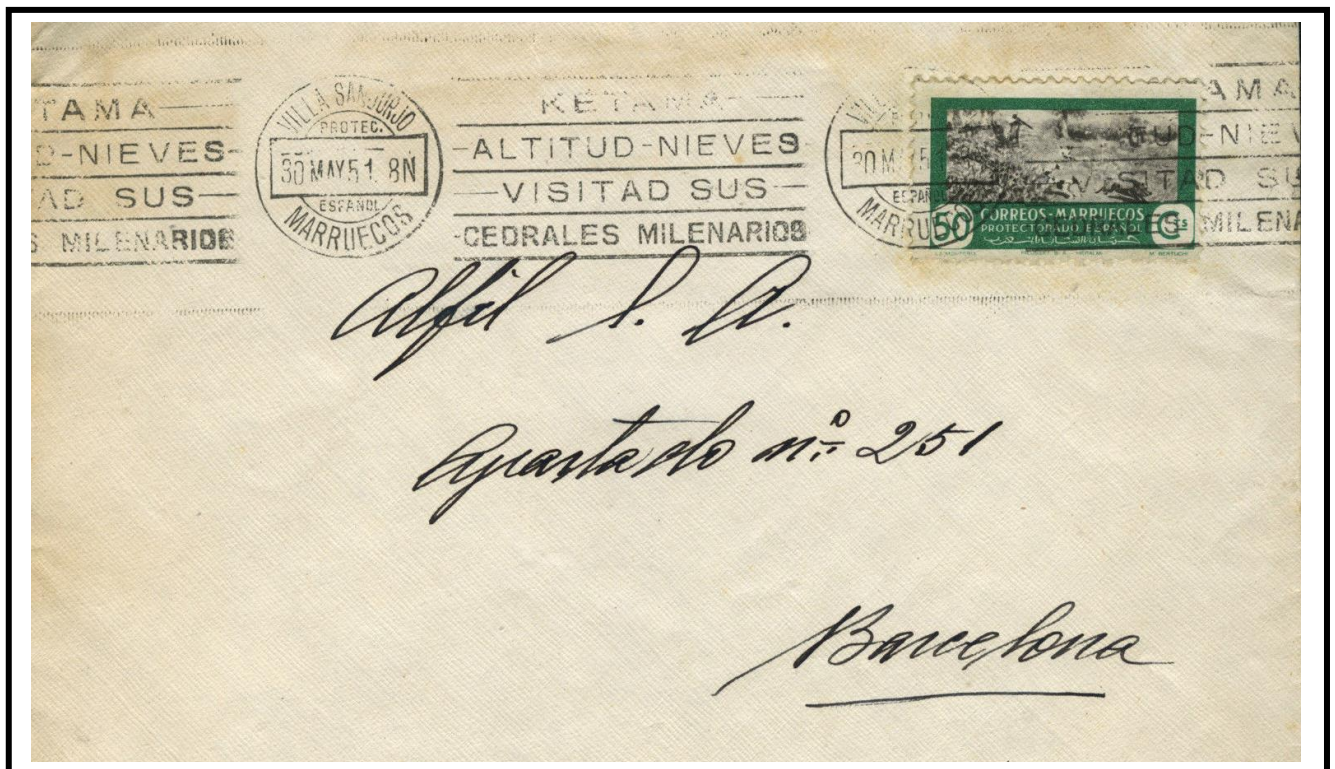 TAMA
D-NIEVES
AD SUS
S MILENARIOS
VILLA SANJURJO
PROTEC.
30 MAY 51 8N
ESPAÑOL
MARRUECOS
KETAMA
ALTITUD-NIEVES
VISITAD SUS
CEDRALES MILENARIOS
30 MAY 5
ESPAÑ
MARRU
AMA
TUD-NIEV
VISITAD SUS
ES MILENA
50 CORREOS-MARRUECOS Cts
PROTECTORADO ESPAÑOL
Alfil S. A.
Apartado nº 251
Barcelona